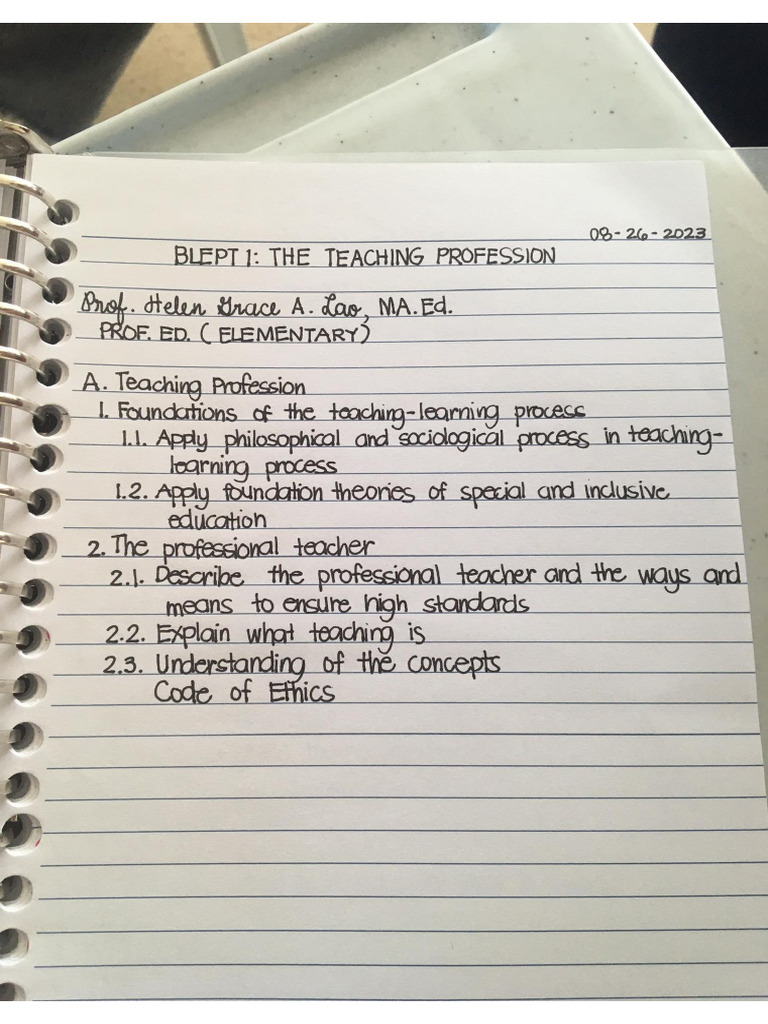 08-26-2023
BLEPT 1: THE TEACHING PROFESSION
Prof. Helen Grace A. Lao, MA.Ed.
PROF. ED. (ELEMENTARY)
A. Teaching Profession
1. Foundations of the teaching-learning process
1.1. Apply philosophical and sociological process in teaching-
learning process
1.2. Apply foundation theories of special and inclusive
education
2. The professional teacher
2.1. Describe the professional teacher and the ways and
means to ensure high standards
2.2. Explain what teaching is
2.3. Understanding of the concepts
Code of Ethics